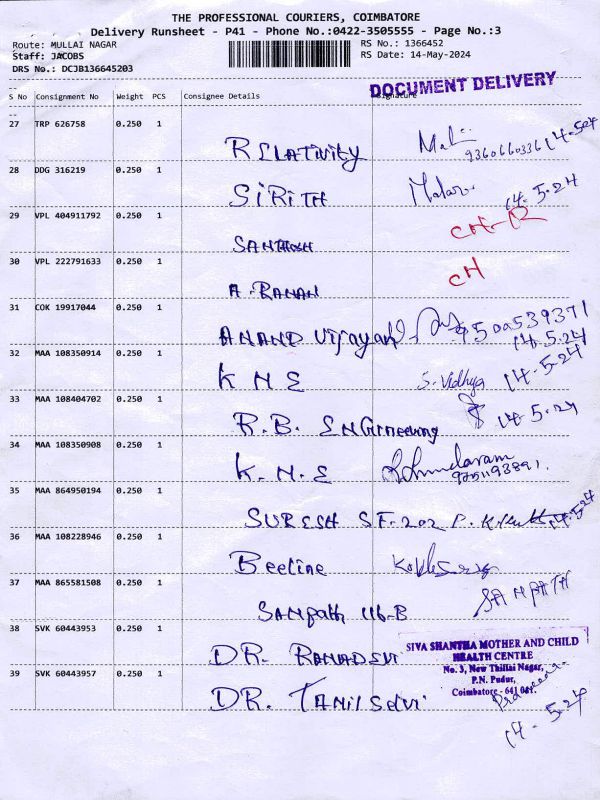 THE PROFESSIONAL COURIERS, COIMBATORE
Delivery Runsheet - P41 - Phone No.:0422-3505555 - Page No.:3
Route: MULLAI NAGAR RS No.: 1366452
Staff: JACOBS RS Date: 14-May-2024
DRS No.: DCJB136645203
DOCUMENT DELIVERY
S No Consignment No Weight PCS Consignee Details Signature
27 TRP 626758 0.250 1
RELATIVITY 14-5-24
28 DDG 316219 0.250 1
SIRITH 14.5.24
29 VPL 404911792 0.250 1
SANTHOSH CH-R
30 VPL 222791633 0.250 1
A. RAMAN CH
31 COK 19917044 0.250 1
ANAND Vijayan 14.5.24
32 MAA 108350914 0.250 1
K N E S. Vidhya 14-5-24
33 MAA 108404702 0.250 1
R.B. ENGineering 14-5-24
34 MAA 108350908 0.250 1
K.N.E
35 MAA 864950194 0.250 1
SURESH SF-202 14-5-24
36 MAA 108228946 0.250 1
Beeline
37 MAA 865581508 0.250 1
SAMPATH
Sampath 116-B
38 SVK 60443953 0.250 1
DR. RAMADEVI
SIVA SHANTHA MOTHER AND CHILD
HEALTH CENTRE
No. 3, New Thillai Nagar,
P.N. Pudur,
Coimbatore - 641 041.
39 SVK 60443957 0.250 1
DR. TAMIL Selvi Praveena
14-5-24